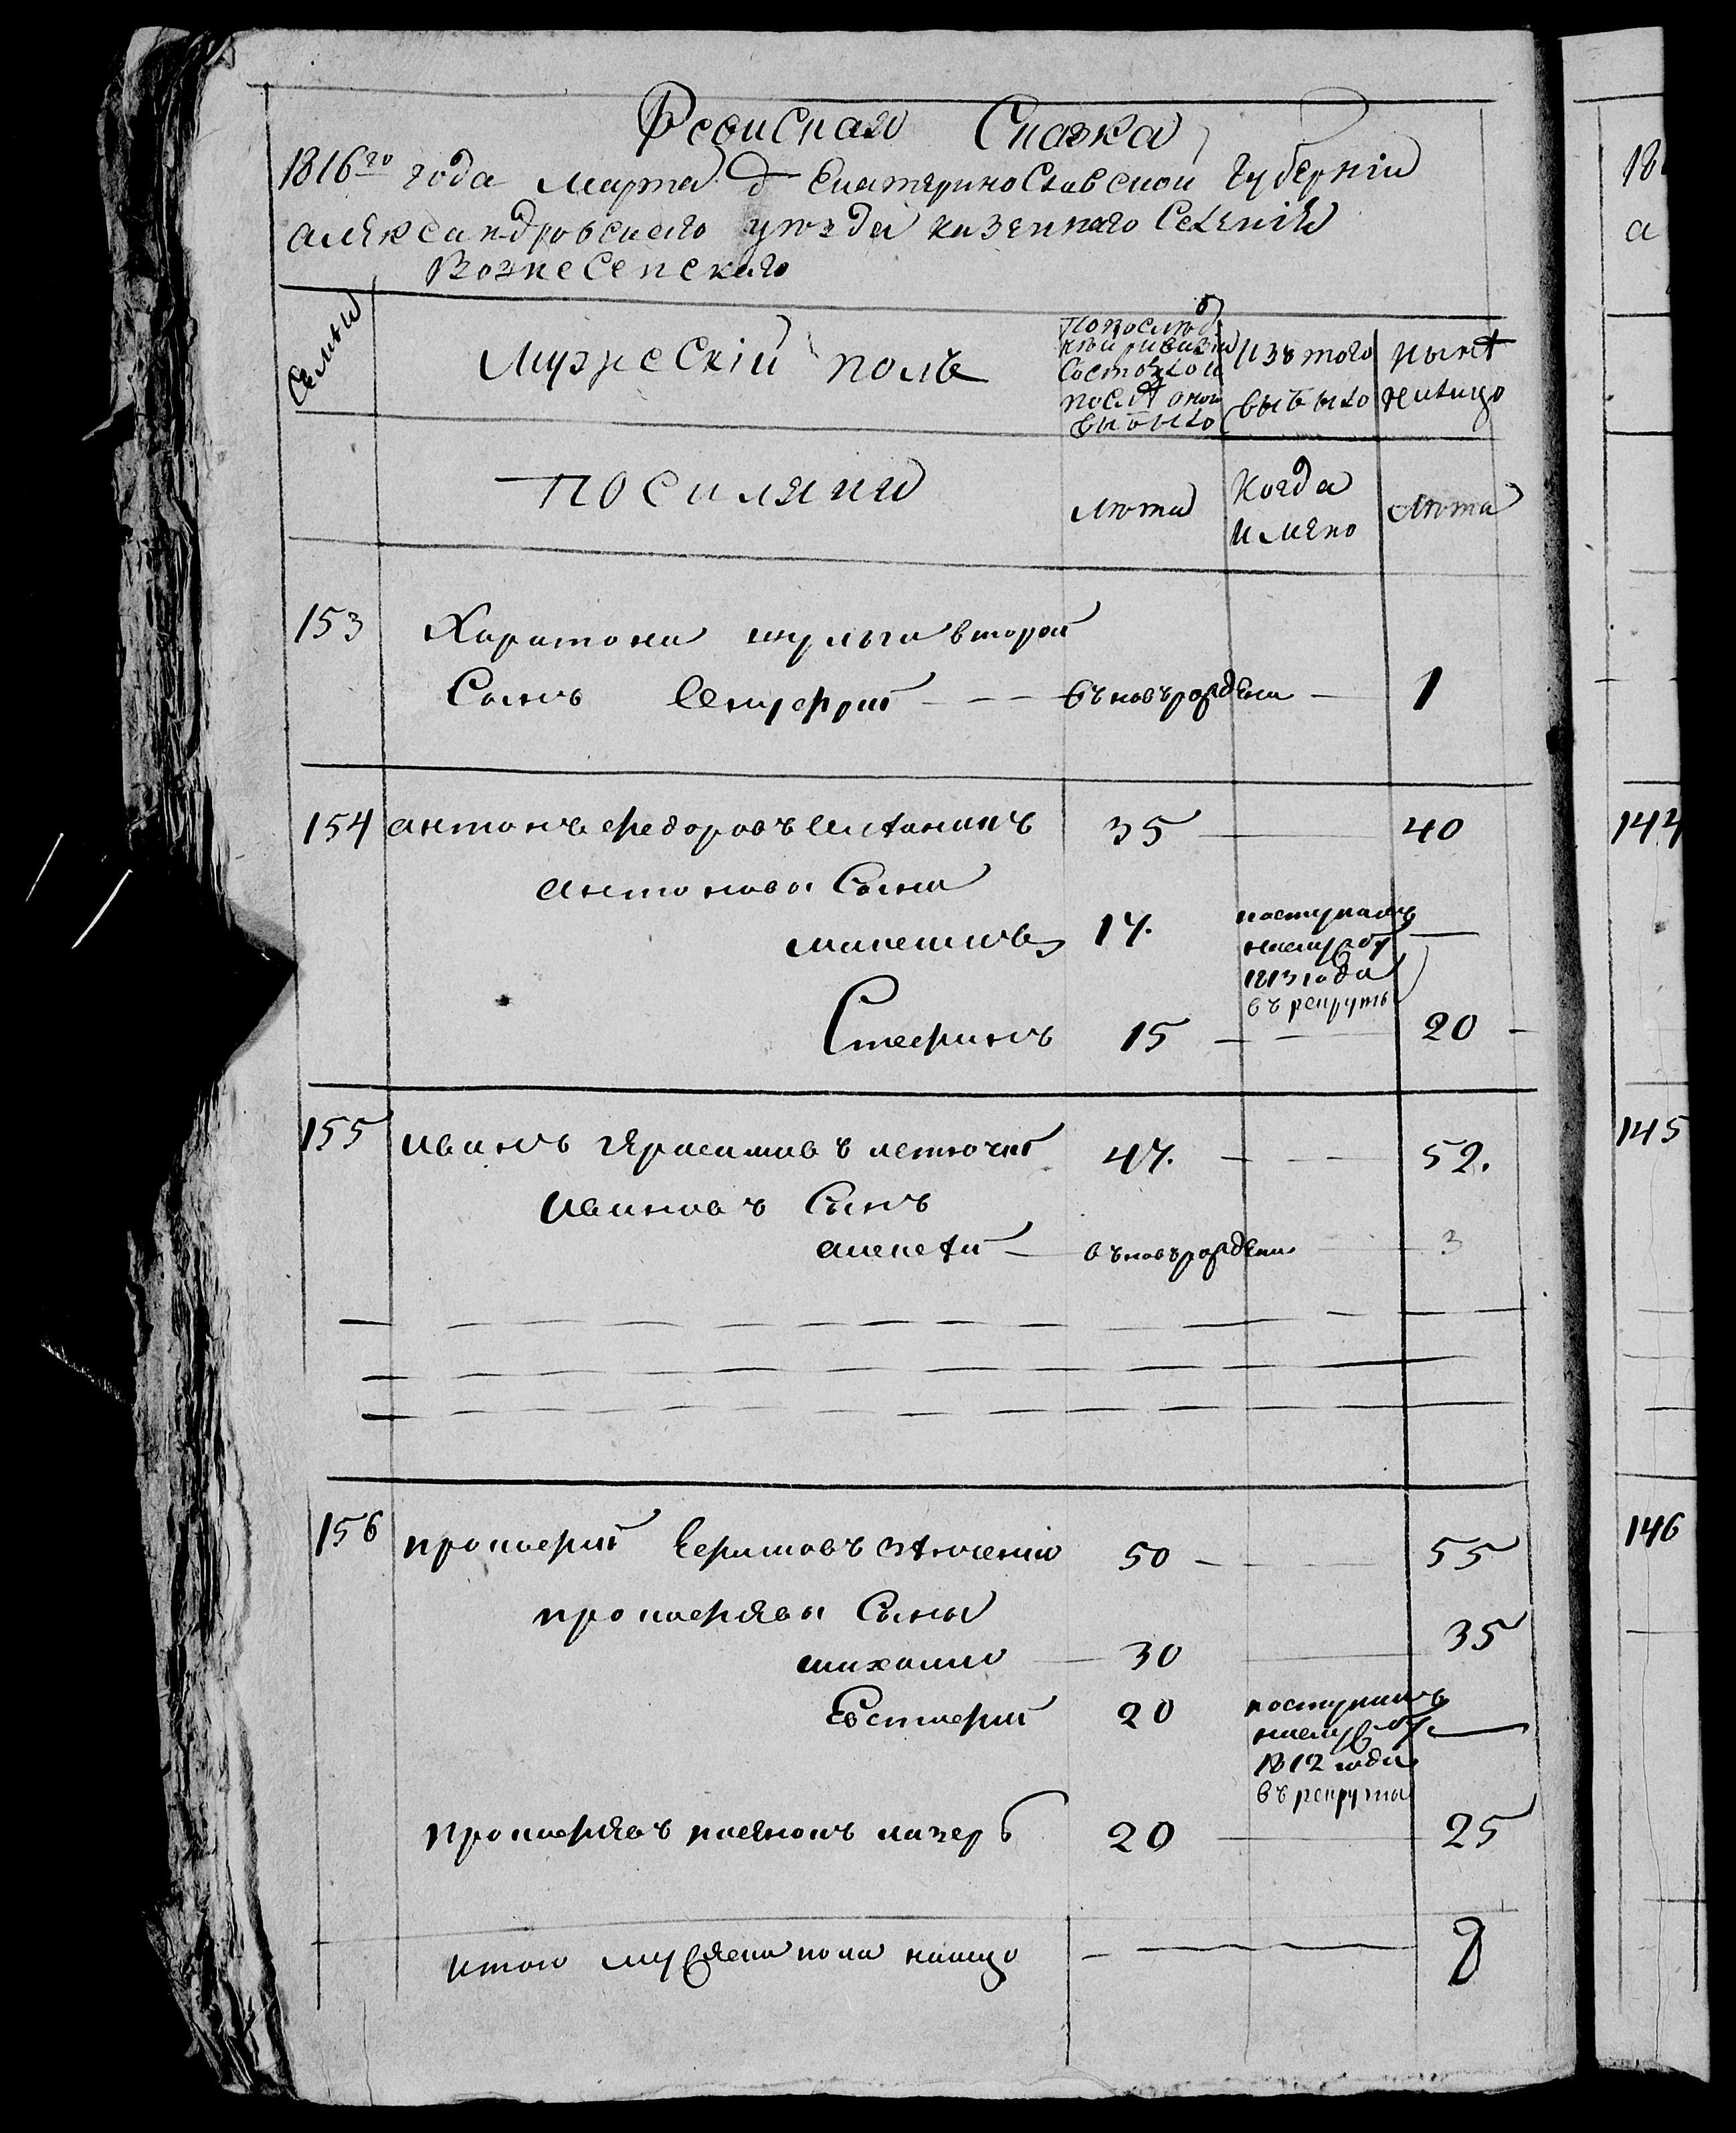 Ревиская Скаска
1816го года марта д Екатеринославской Губернїи
александровскаго уезда казеннаго Селенія
Вознесенскаго
Семьи
Мужескій полъ
По послѣд
ней ривизіи
Состояло и
послѣ оной
выбыло
Изъ того
выбыло
ныне
налицо
Посиляни
лета
Когда
имено
лета
153 Харитона шулги второй
Сынъ Онуфрій — — въновърождени — 1
154 антонъ федоровъ 35 — 40
антоновы Сына
14.
поступилъ
1813 года
въ рекруты
Стефанъ 15 — — 20 —
155 иванъ герасимовъ 47. — — 52.
Ивановъ Сынъ
алексѣй — въновърождени 3
156 прокофій Ефимовъ 50 — 55
прокофяви Сыны
михаило — 30 — 35
Евстафій 20
поступилъ
1812 года
въ рекруты
прокофявъ назаръ 20 — 25
итого мужеска пола налицо — — 8
18
а
144
145
146